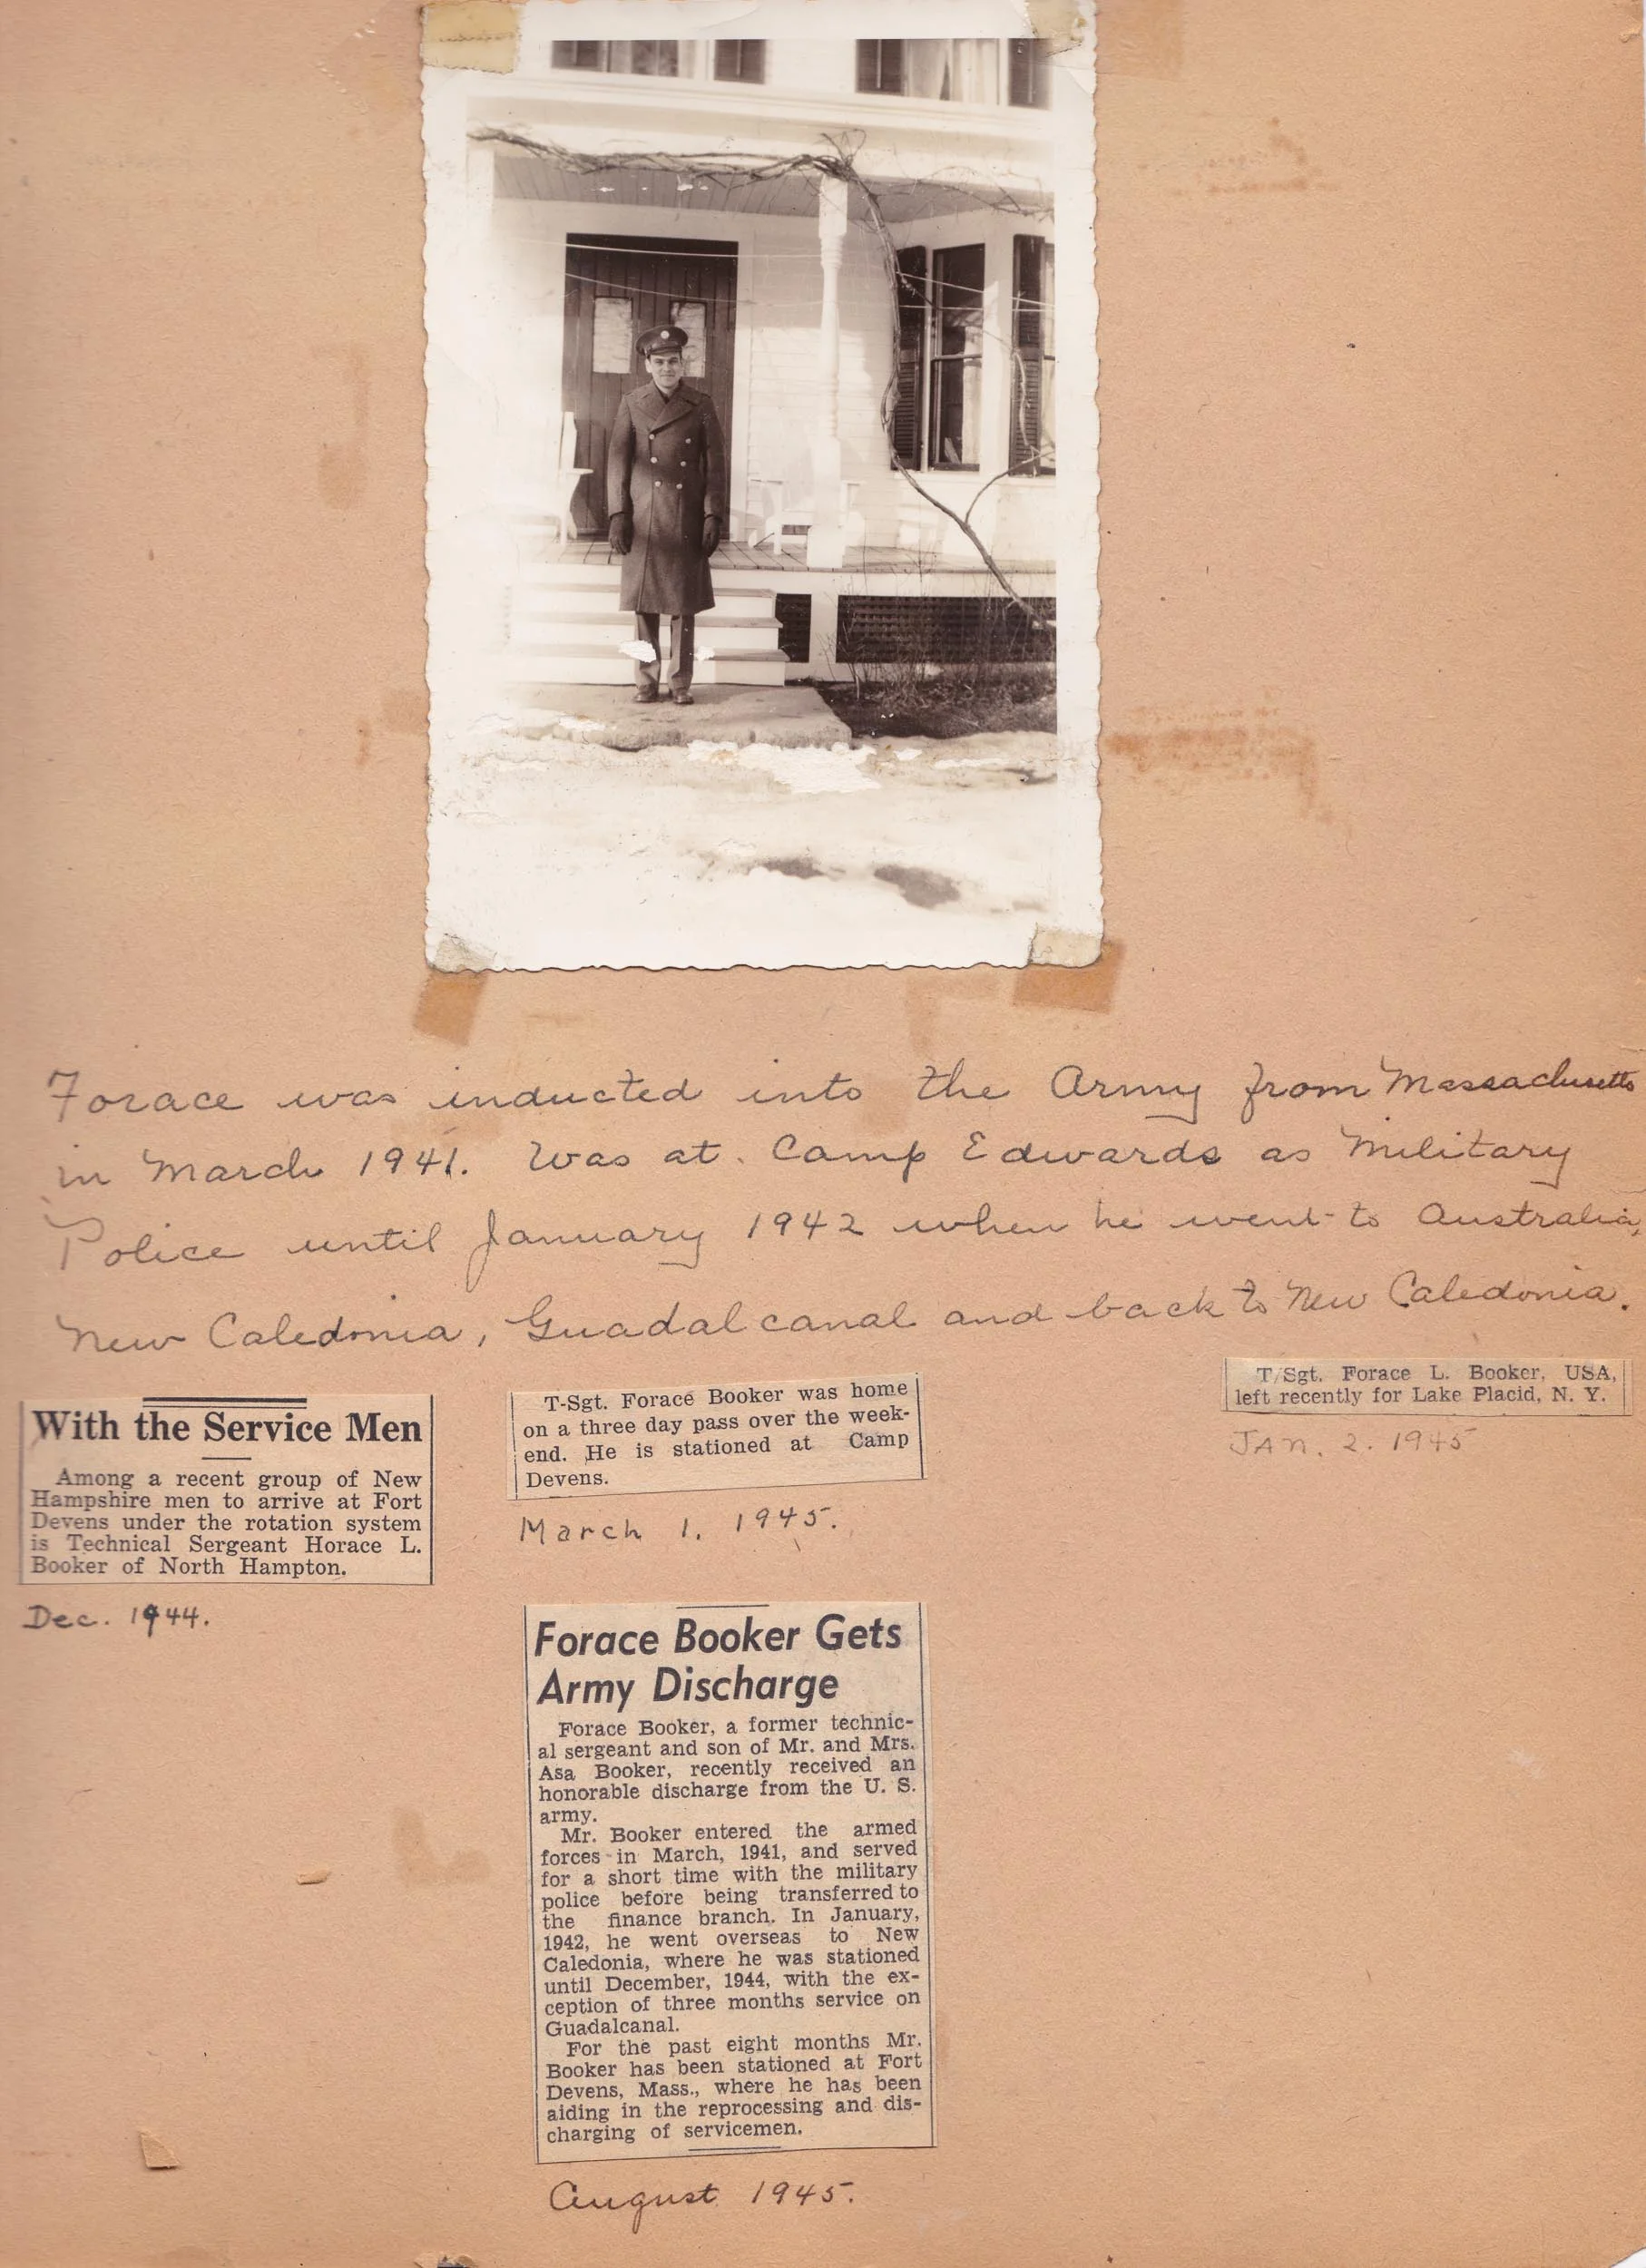 Forace was inducted into the Army from Massachusetts
in March 1941. Was at Camp Edwards as Military
Police until January 1942 when he went to Australia,
New Caledonia, Guadalcanal and back to New Caledonia.
With the Service Men
Among a recent group of New
Hampshire men to arrive at Fort
Devens under the rotation system
is Technical Sergeant Horace L.
Booker of North Hampton.
Dec. 1944.
T-Sgt. Forace Booker was home
on a three day pass over the week-
end. He is stationed at Camp
Devens.
March 1. 1945.
T/Sgt. Forace L. Booker, USA,
left recently for Lake Placid, N. Y.
JAN. 2. 1945
Forace Booker Gets
Army Discharge
Forace Booker, a former technic-
al sergeant and son of Mr. and Mrs.
Asa Booker, recently received an
honorable discharge from the U. S.
army.
Mr. Booker entered the armed
forces in March, 1941, and served
for a short time with the military
police before being transferred to
the finance branch. In January,
1942, he went overseas to New
Caledonia, where he was stationed
until December, 1944, with the ex-
ception of three months service on
Guadalcanal.
For the past eight months Mr.
Booker has been stationed at Fort
Devens, Mass., where he has been
aiding in the reprocessing and dis-
charging of servicemen.
August 1945.